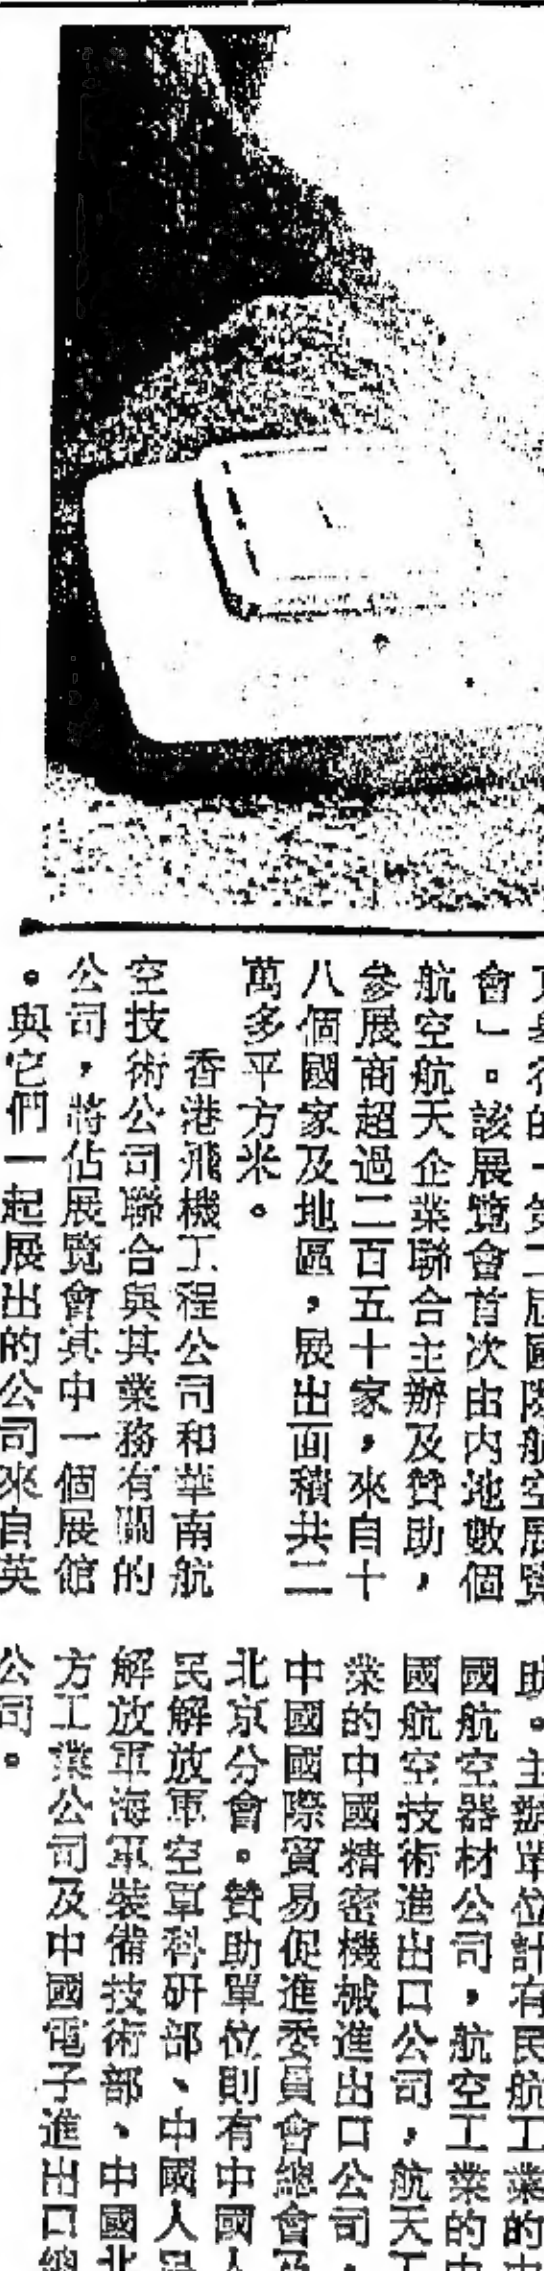 京舉行的「第二屆國際航空展覽
會」。該展覽會首次由內地數個
航空航天企業聯合主辦及贊助，
參展商超過二百五十家，來自十
八個國家及地區，展出面積共二
萬多平方米。
香港飛機工程公司和華南航
空技術公司聯合與其業務有關的
公司，將佔展覽會其中一個展館
。與它們一起展出的公司來自英
助。主辦單位計有民航工業的中
國航空器材公司，航空工業的中
國航空技術進出口公司，航天工
業的中國精密機械進出口公司，
中國國際貿易促進委員會總會及
北京分會。贊助單位則有中國人
民解放軍空軍科研部、中國人民
解放軍海軍裝備技術部、中國北
方工業公司及中國電子進出口總
公司。